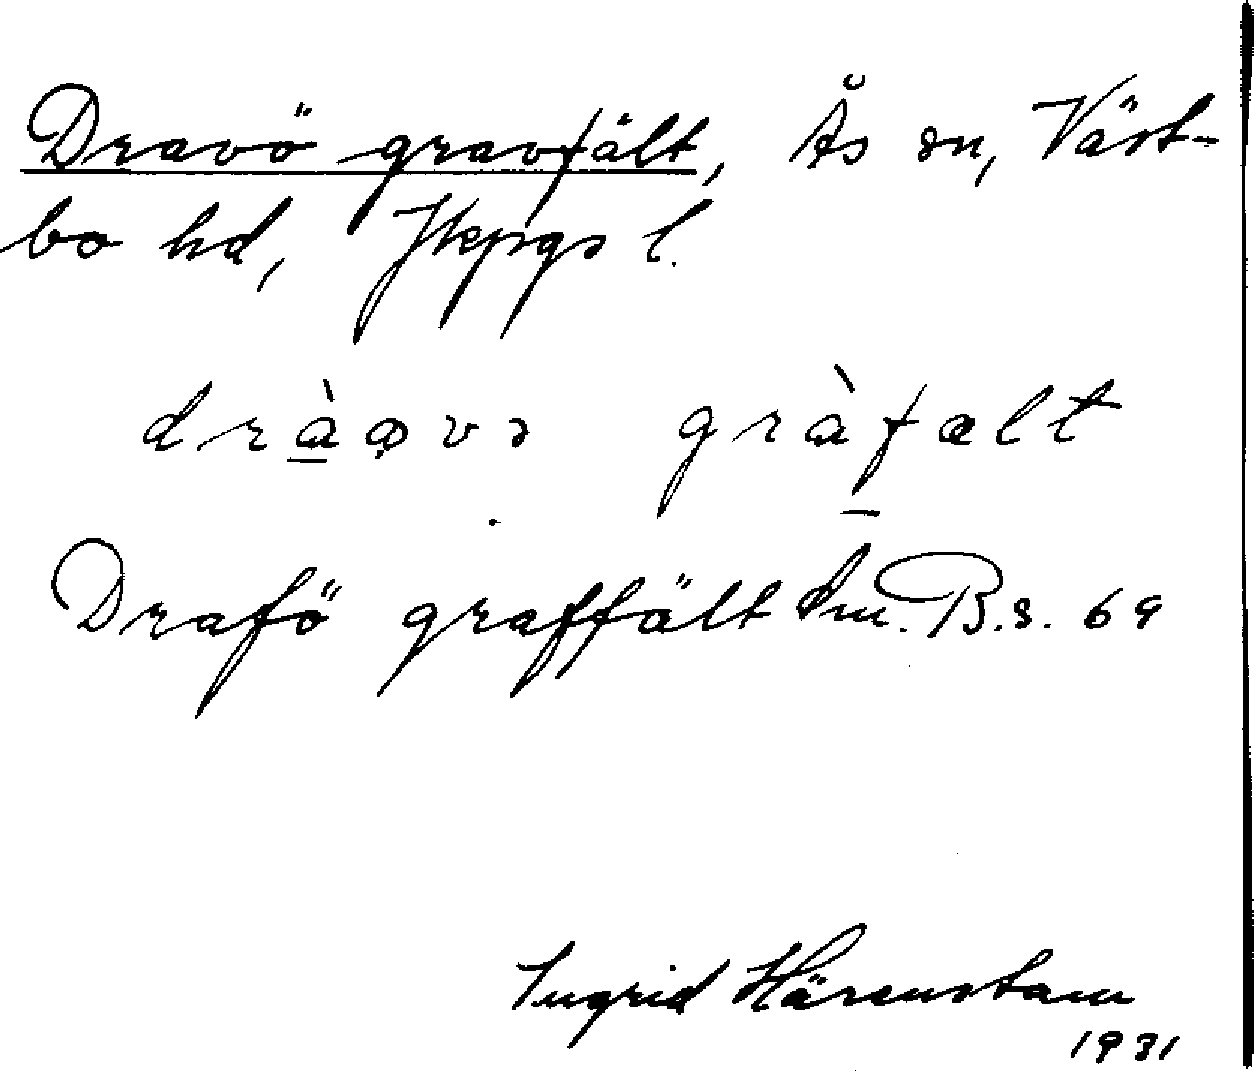 Dravö gravfält, Ås sn, Väst-
bo hd, Jkpgs l.
dràɑvə gràfælt
Drafö graffält Sm. B. s. 69
Ingrid Härenstam
1931